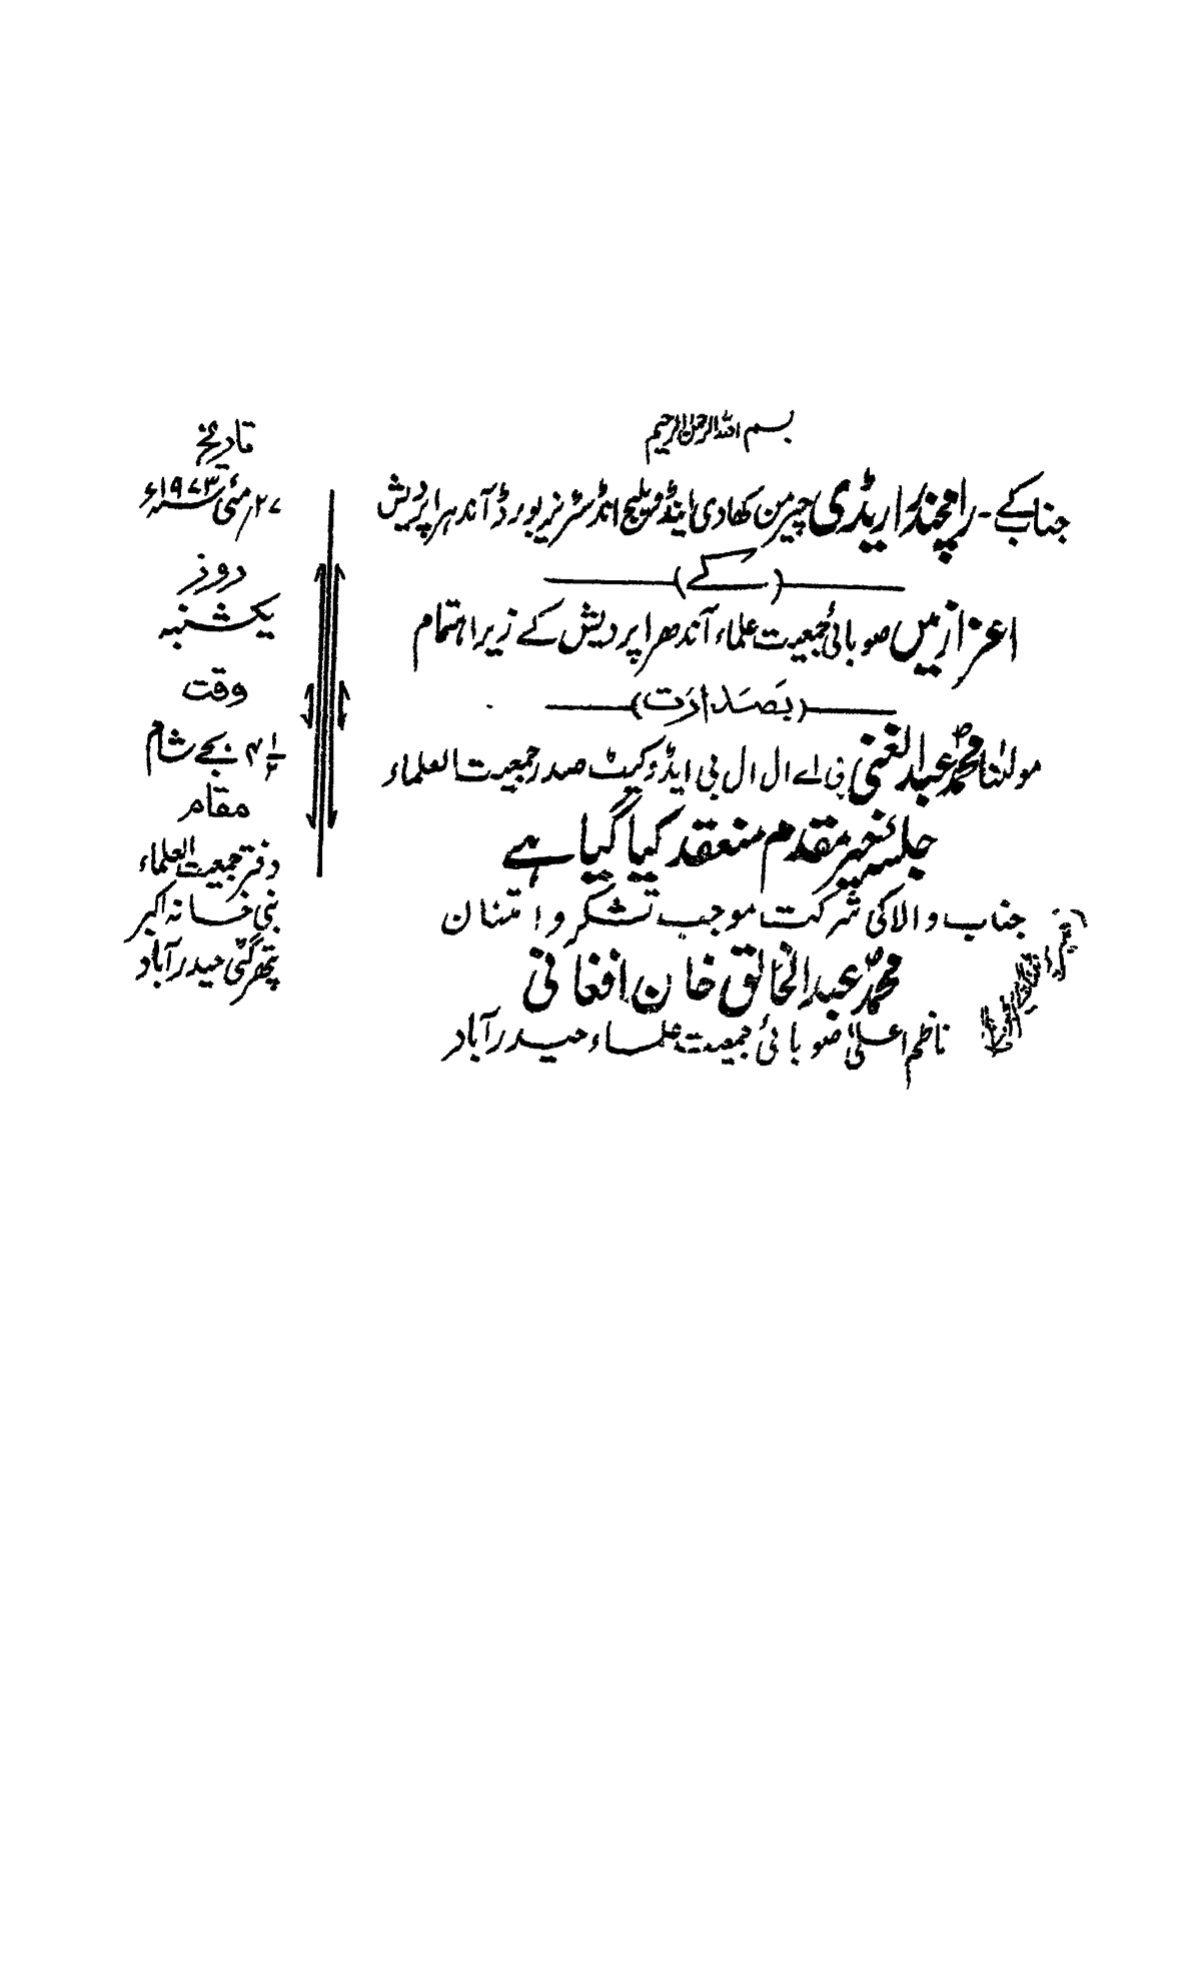 بسم اللہ الرحمٰن الرحیم
جناب کے - رامچندرا ریڈی چیرمن کھادی اینڈ ویلیج انڈسٹریز بورڈ آندھرا پردیش
(کے)
اعزاز میں صوبائی جمعیت علماء آندھرا پردیش کے زیر اہتمام
(بصدارت)
مولٰنا محمد عبدالغنی بی اے ال ال بی ایڈوکیٹ صدر جمعیت العلماء
جلسہ خیر مقدم منعقد کیا گیا ہے
جناب والا کی شرکت موجب تشکر و امتنان
محمد عبدالخالق خان افغانی
ناظم اعلیٰ صوبائی جمعیت علماء حیدرآباد
تاریخ
۲۷ مئی ۱۹۷۳ء
روز
یکشنبہ
وقت
۴ ۱/۲ بجے شام
مقام
دفتر جمعیت العلماء
نبی خانہ اکبر
پتھر گٹی حیدرآباد